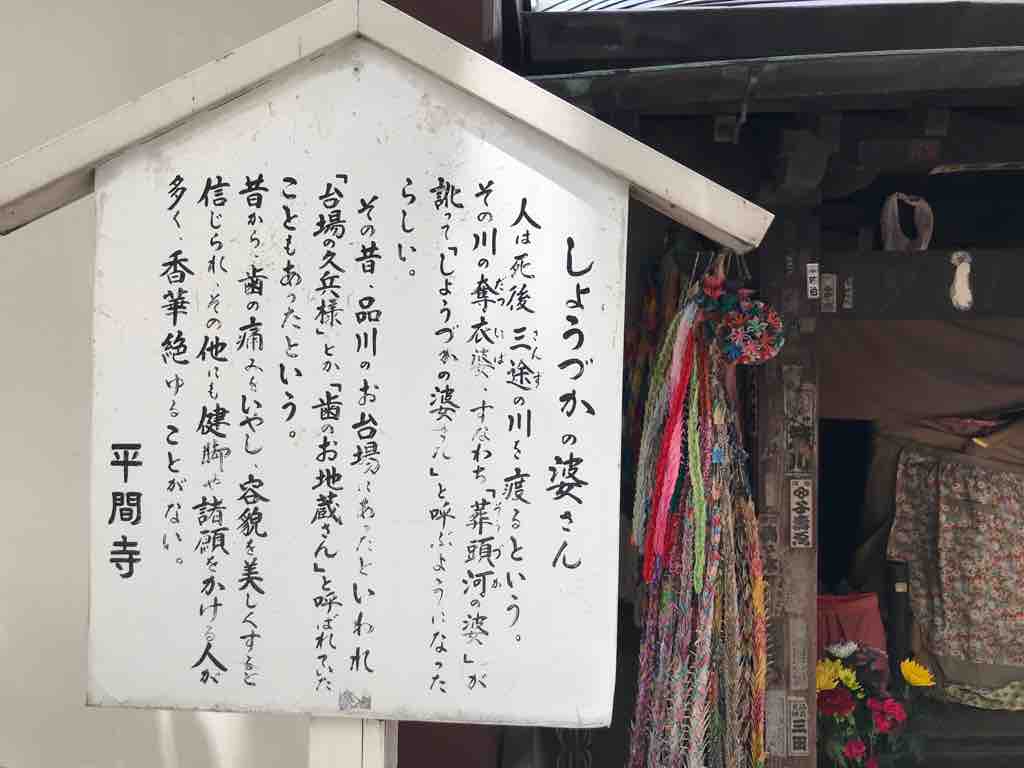 しょうづかの婆さん
人は死後三途の川を渡るという。
さんず
その川の奪衣婆、すなわち「葬頭河の婆」が
だつ いば そうづか
訛って「しょうづかの婆さん」と呼ぶようになった
らしい。
その昔、品川のお台場にあったといわれ
「台場の久兵様」とか「歯のお地蔵さん」と呼ばれていた
こともあったという。
昔から、歯の痛みをいやし、容貌を美しくすると
信じられ、その他にも健脚や諸願をかける人が
多く、香華絶ゆることがない。
平間寺
三田